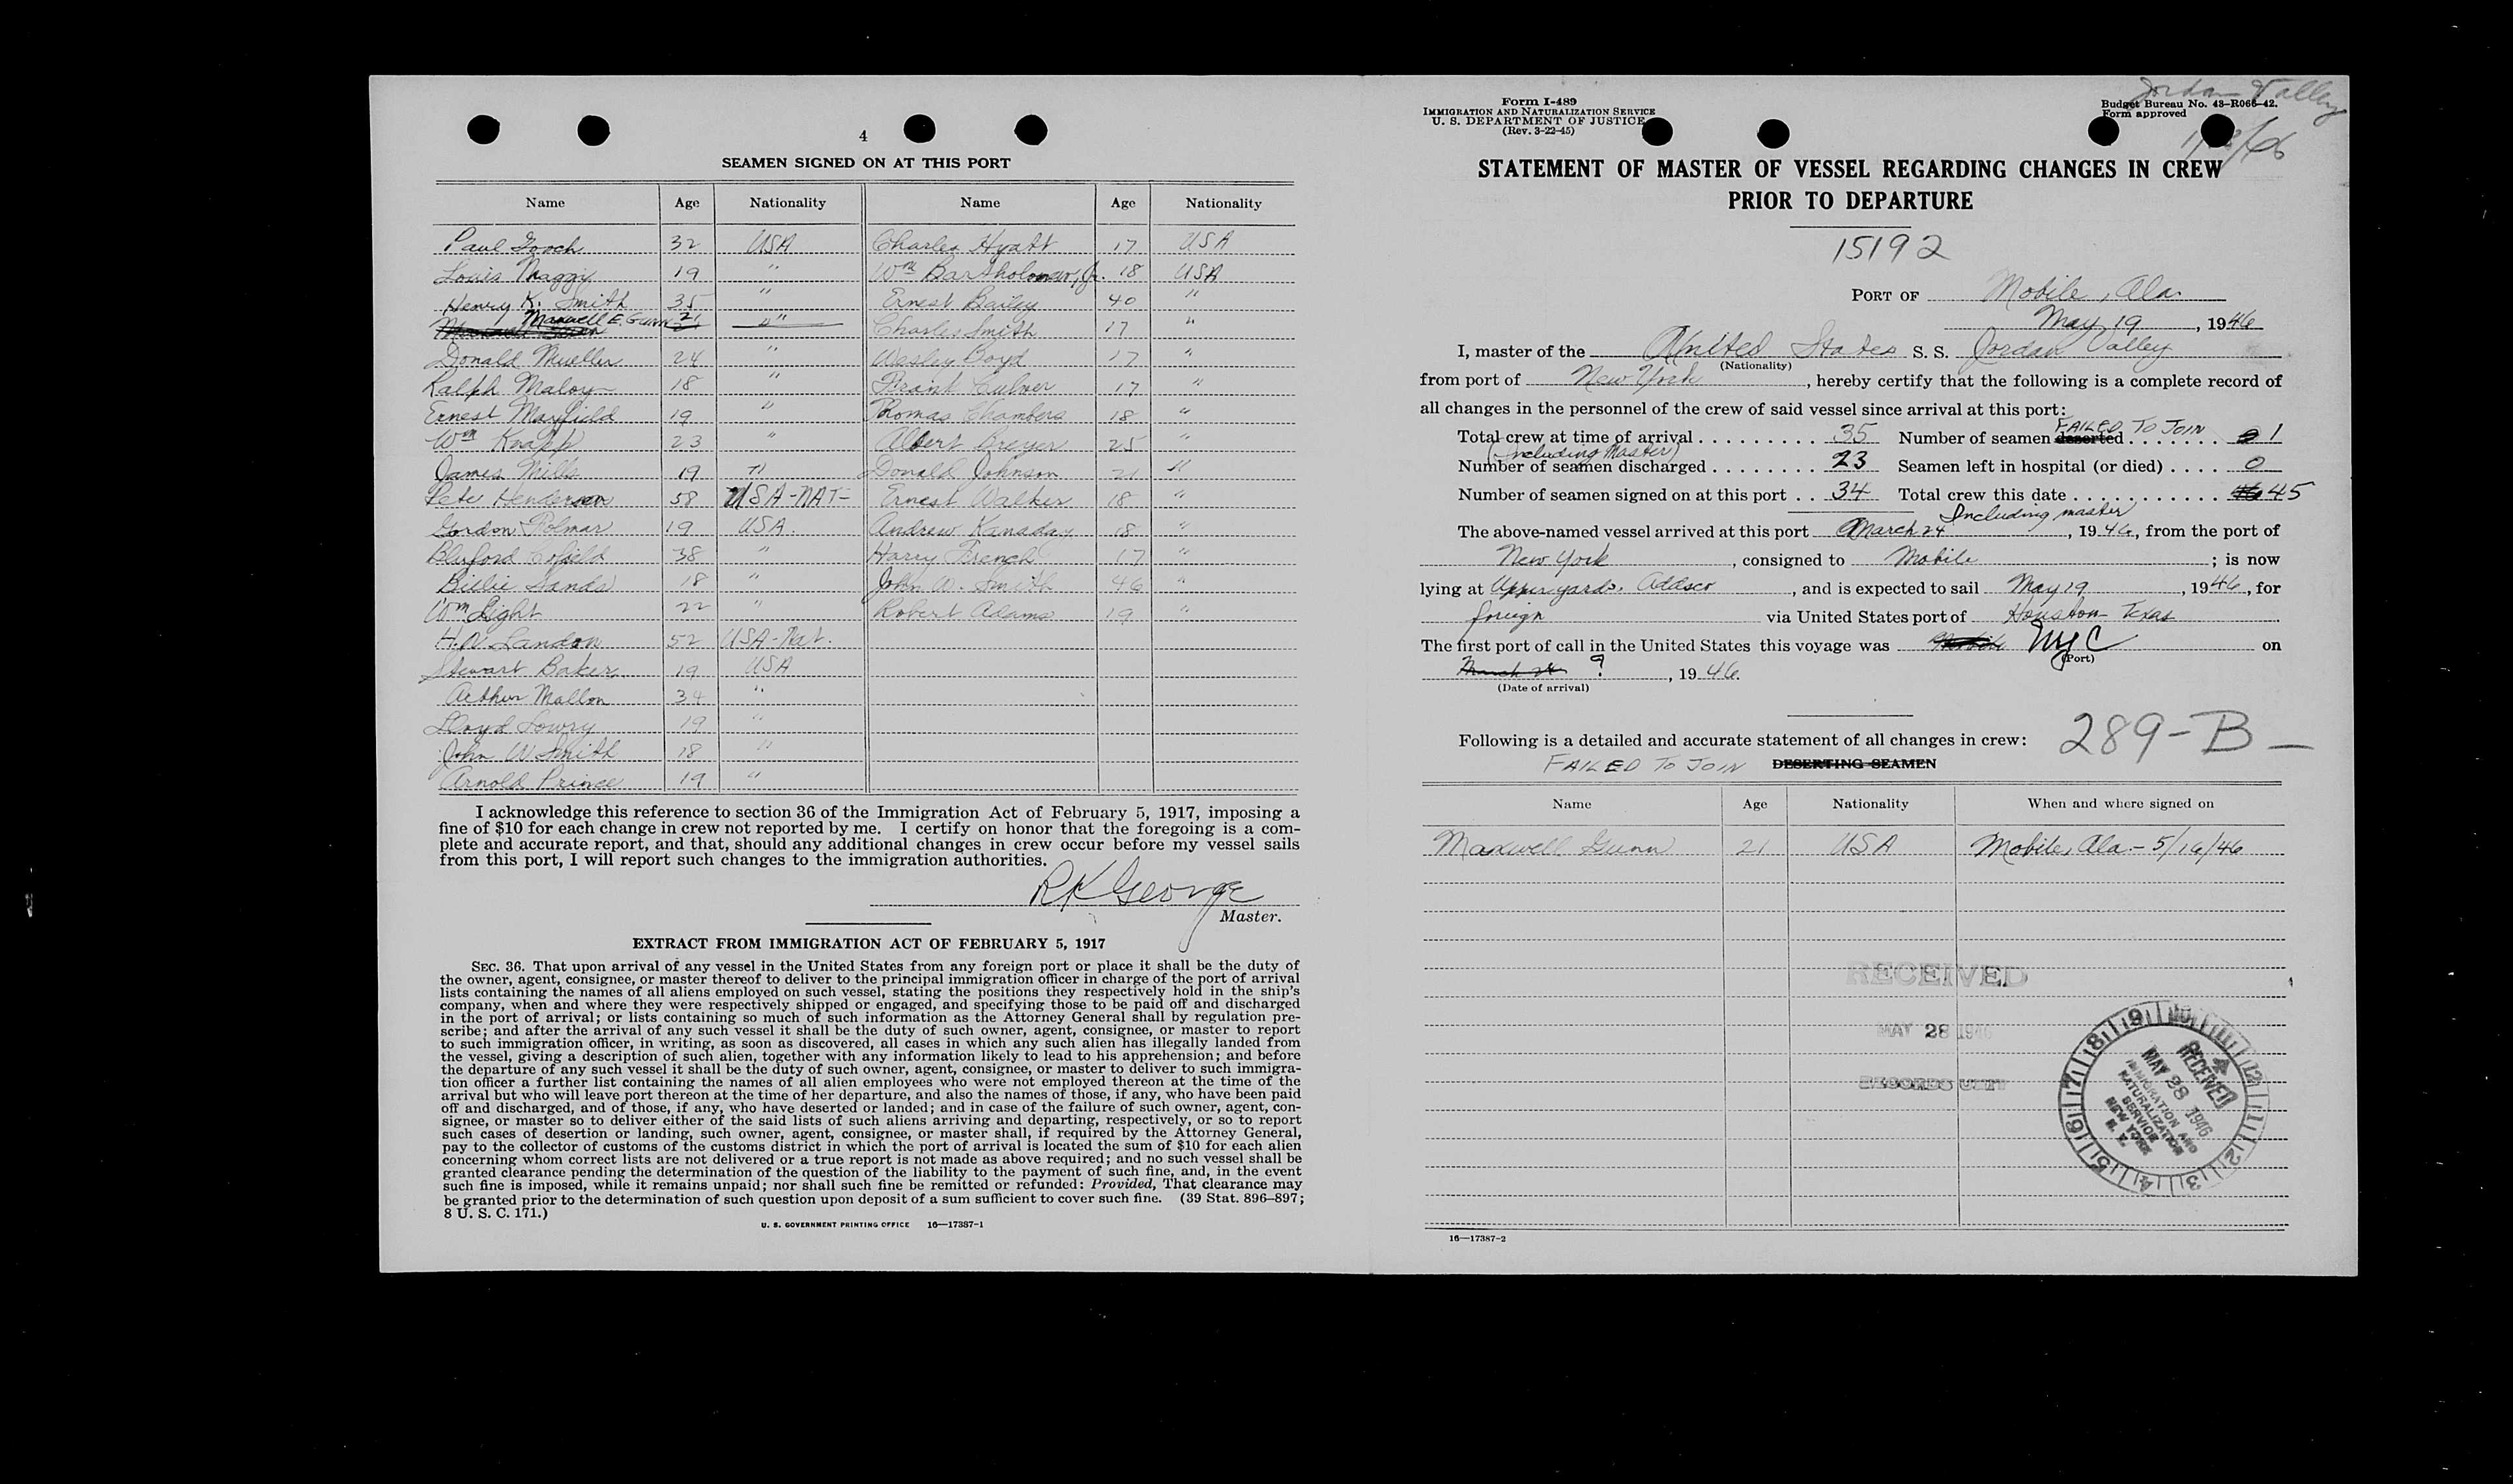 4
SEAMEN SIGNED ON AT THIS PORT
Name Age Nationality Name Age Nationality
Paul Gooch 32 USA Charles Hyatt 17 USA
Louis Maggy 19 " Wm Bartholomew, Jr. 18 USA
Henry K. Smith 35 " Ernest Bailey 40 "
Maxwell E. Gunn 21 " Charles Smith 17 "
Donald Mueller 24 " Wesley Boyd 17 "
Ralph Maloy 18 " Frank Culver 17 "
Ernest Mayfield 19 " Thomas Chambers 18 "
Wm Knapp 23 " Albert Breyer 25 "
James Mills 19 " Donald Johnson 21 "
Pete Henderson 58 USA-NAT- Ernest Walker 18 "
Gordon Polmar 19 USA. Andrew Kanaday 18 "
Bluford Cofield 38 " Harry French 17 "
Billie Sands 18 " John W. Smith 46 "
Wm Light 22 " Robert Adams 19 "
H.W. Landon 52 USA-Nat.
Stewart Baker 19 USA
Arthur Mallon 34 "
Lloyd Lowry 19 "
John W Smith 18 "
Arnold Prince 19 "
I acknowledge this reference to section 36 of the Immigration Act of February 5, 1917, imposing a
fine of $10 for each change in crew not reported by me. I certify on honor that the foregoing is a com-
plete and accurate report, and that, should any additional changes in crew occur before my vessel sails
from this port, I will report such changes to the immigration authorities.
RK George
Master.
EXTRACT FROM IMMIGRATION ACT OF FEBRUARY 5, 1917
SEC. 36. That upon arrival of any vessel in the United States from any foreign port or place it shall be the duty of
the owner, agent, consignee, or master thereof to deliver to the principal immigration officer in charge of the port of arrival
lists containing the names of all aliens employed on such vessel, stating the positions they respectively hold in the ship's
company, when and where they were respectively shipped or engaged, and specifying those to be paid off and discharged
in the port of arrival; or lists containing so much of such information as the Attorney General shall by regulation pre-
scribe; and after the arrival of any such vessel it shall be the duty of such owner, agent, consignee, or master to report
to such immigration officer, in writing, as soon as discovered, all cases in which any such alien has illegally landed from
the vessel, giving a description of such alien, together with any information likely to lead to his apprehension; and before
the departure of any such vessel it shall be the duty of such owner, agent, consignee, or master to deliver to such immigra-
tion officer a further list containing the names of all alien employees who were not employed thereon at the time of the
arrival but who will leave port thereon at the time of her departure, and also the names of those, if any, who have been paid
off and discharged, and of those, if any, who have deserted or landed; and in case of the failure of such owner, agent, con-
signee, or master so to deliver either of the said lists of such aliens arriving and departing, respectively, or so to report
such cases of desertion or landing, such owner, agent, consignee, or master shall, if required by the Attorney General,
pay to the collector of customs of the customs district in which the port of arrival is located the sum of $10 for each alien
concerning whom correct lists are not delivered or a true report is not made as above required; and no such vessel shall be
granted clearance pending the determination of the question of the liability to the payment of such fine, and, in the event
such fine is imposed, while it remains unpaid; nor shall such fine be remitted or refunded: Provided, That clearance may
be granted prior to the determination of such question upon deposit of a sum sufficient to cover such fine. (39 Stat. 896–897;
8 U. S. C. 171.)
U. S. GOVERNMENT PRINTING OFFICE 16—17387-1
Jordan Valley
Form I-489
IMMIGRATION AND NATURALIZATION SERVICE
U. S. DEPARTMENT OF JUSTICE
(Rev. 3-22-45)
Budget Bureau No. 43-R066-42.
Form approved
STATEMENT OF MASTER OF VESSEL REGARDING CHANGES IN CREW
PRIOR TO DEPARTURE
15192
PORT OF Mobile, Ala.
May 19, 1946
I, master of the United States S. S. Jordan Valley
(Nationality)
from port of New York, hereby certify that the following is a complete record of
all changes in the personnel of the crew of said vessel since arrival at this port:
FAILED TO JOIN
Total crew at time of arrival 35 Number of seamen deserted 1
(Including Master)
Number of seamen discharged 23 Seamen left in hospital (or died) 0
Number of seamen signed on at this port 34 Total crew this date 45
Including master
The above-named vessel arrived at this port March 24, 1946, from the port of
New York, consigned to Mobile; is now
lying at Upper yards. Addsco, and is expected to sail May 19, 1946, for
foreign via United States port of Houston Texas
The first port of call in the United States this voyage was Mobile NYC on
(Port)
March 24 ?, 1946.
(Date of arrival)
Following is a detailed and accurate statement of all changes in crew: 289-B—
FAILED TO JOIN DESERTING SEAMEN
Name Age Nationality When and where signed on
Maxwell Gunn 21 USA Mobile, Ala. - 5/16/46
RECEIVED
MAY 28 1946
RECORDS UNIT
RECEIVED
MAY 28 1946
IMMIGRATION AND
NATURALIZATION
SERVICE
NEW YORK
N. Y.
16—17387-2